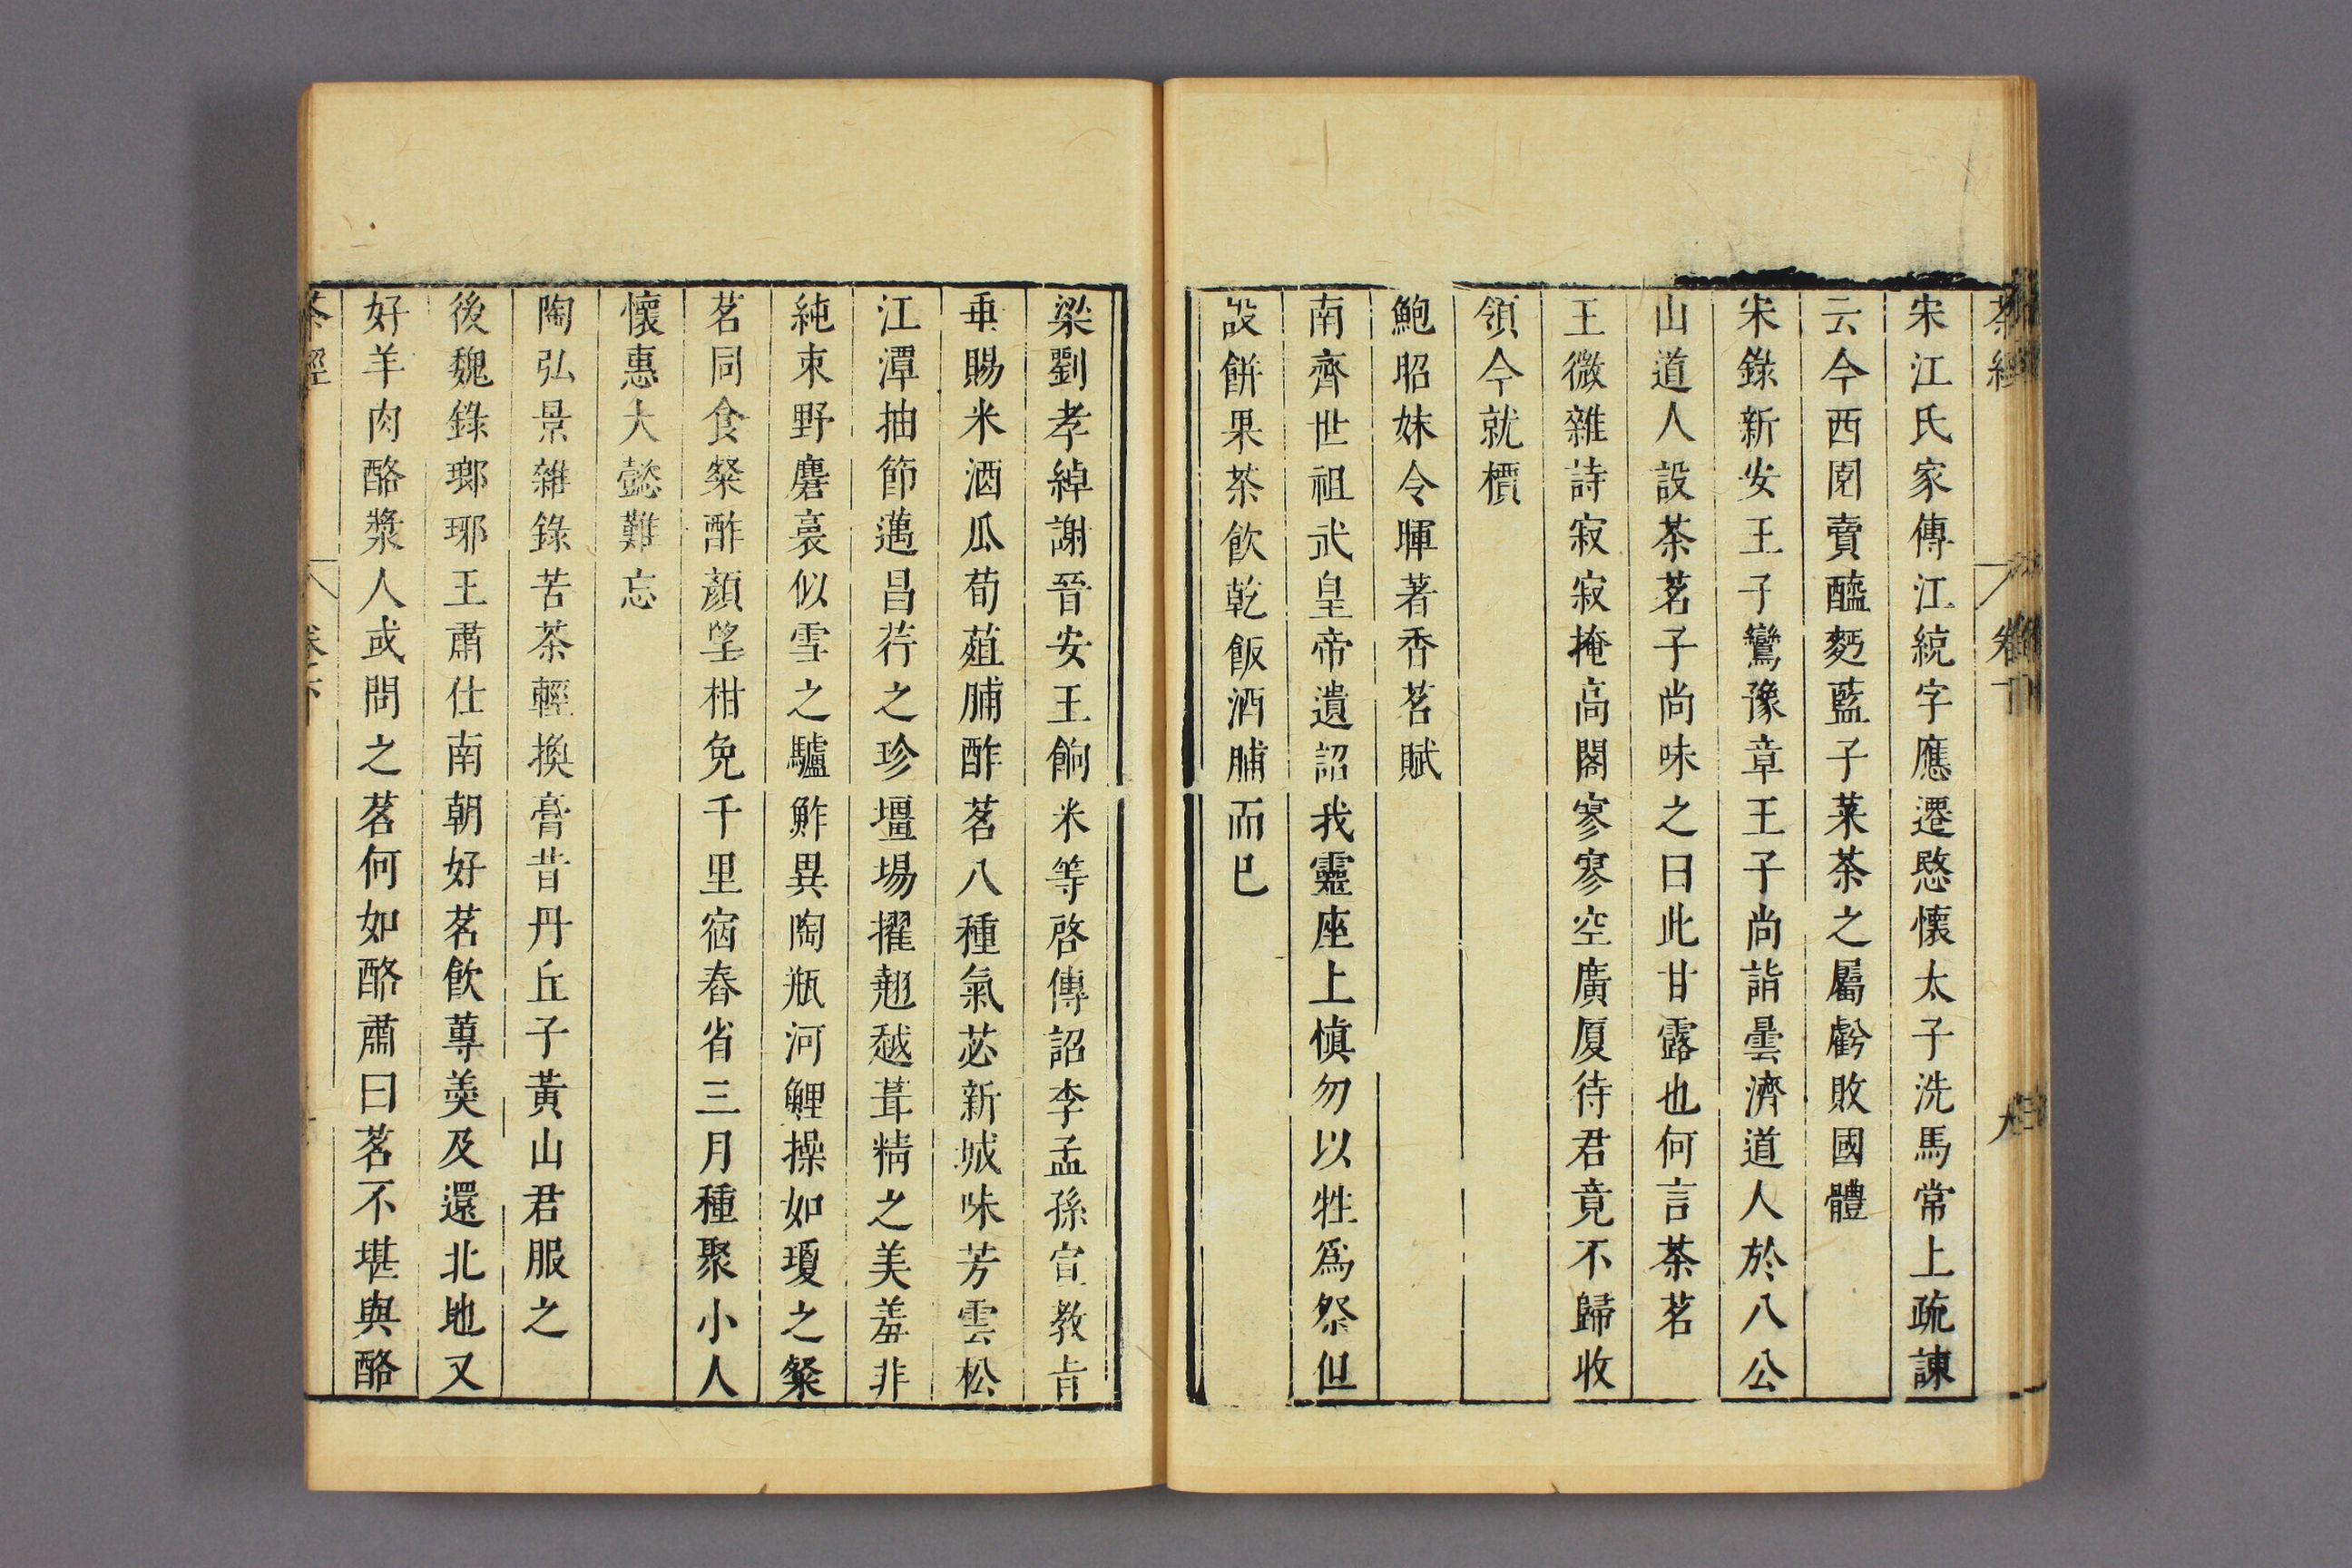 茶經
卷下
宋江氏家傳江統字應遷愍懷太子洗馬常上疏諫
云今西園賣醯麪藍子菜茶之屬虧敗國體
宋錄新安王子鸞豫章王子尚詣曇濟道人於八公
山道人設茶茗子尚味之曰此甘露也何言茶茗
王微雜詩寂寂掩高閣寥寥空廣厦待君竟不歸收
領今就檟
鮑昭妹令暉著香茗賦
南齊世祖武皇帝遺詔我靈座上慎勿以牲爲祭但
設餅果茶飲乾飯酒脯而已
梁劉孝綽謝晉安王餉米等啓傳詔李孟孫宣教旨
垂賜米酒瓜荀葅脯酢茗八種氣苾新城味芳雲松
江潭抽節邁昌荇之珍壃場擢翹越葺精之美羞非
純束野麏裛似雪之驢鮓異陶瓶河鯉操如瓊之粲
茗同食粲酢顏望柑免千里宿舂省三月種聚小人
懷惠大懿難忘
陶弘景雜錄苦茶輕換膏昔丹丘子黃山君服之
後魏錄瑯琊王肅仕南朝好茗飲蓴羮及還北地又
好羊肉酪漿人或問之茗何如酪肅曰茗不堪與酪
茶經
卷下